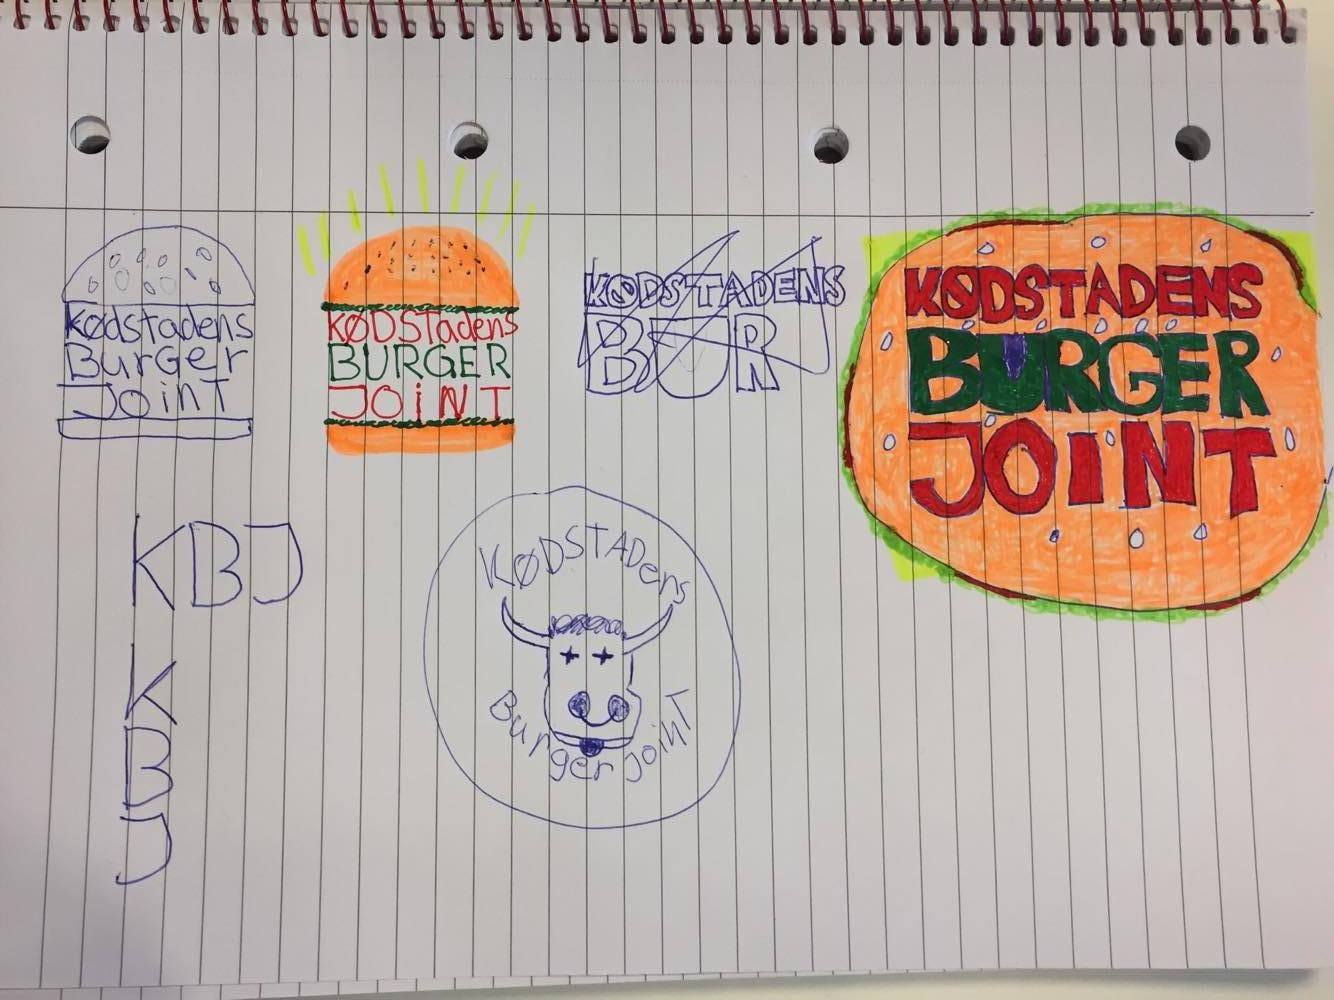 Kødstadens
Burger
JoinT
KØDSTadens
BURGER
JOiNT
KØDSTADENS
BUR
KØDSTADENS
BURGER
JOiNT
KBJ
K
B
J
KØDSTADens
Burger joinT